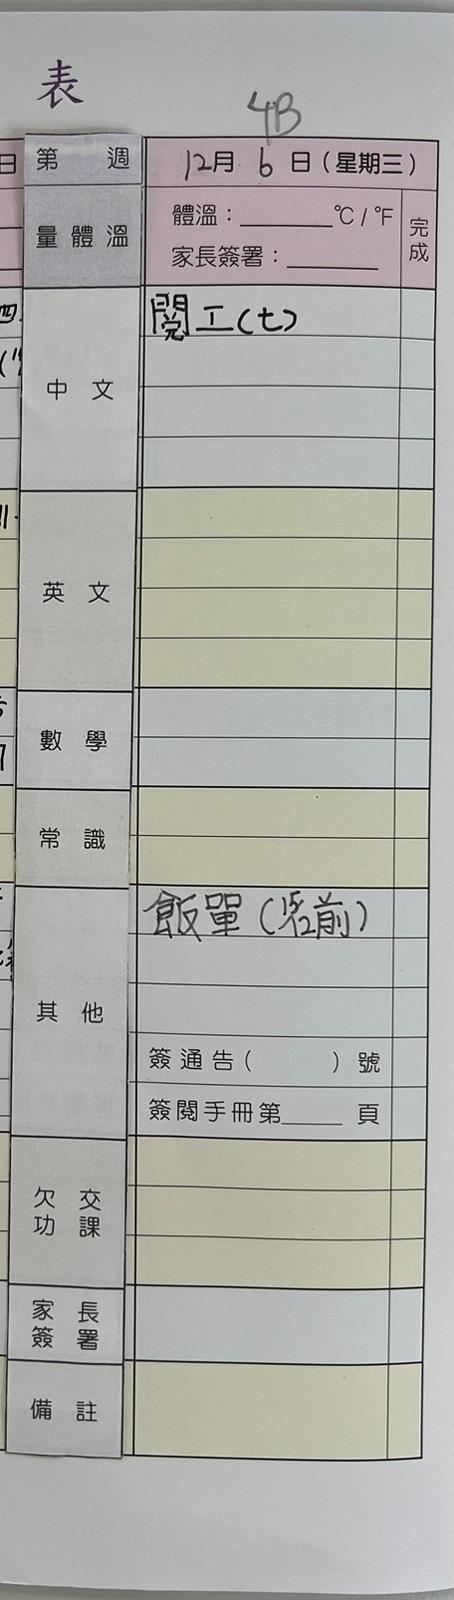 表
4B
日
第 週
12月 6 日(星期三)
量體溫
體溫:______℃/℉
家長簽署:______
完成
中文
閱工(七)
英文
數學
常識
其他
飯單(前)
簽通告( )號
簽閱手冊第____頁
欠交功課
家長簽署
備註